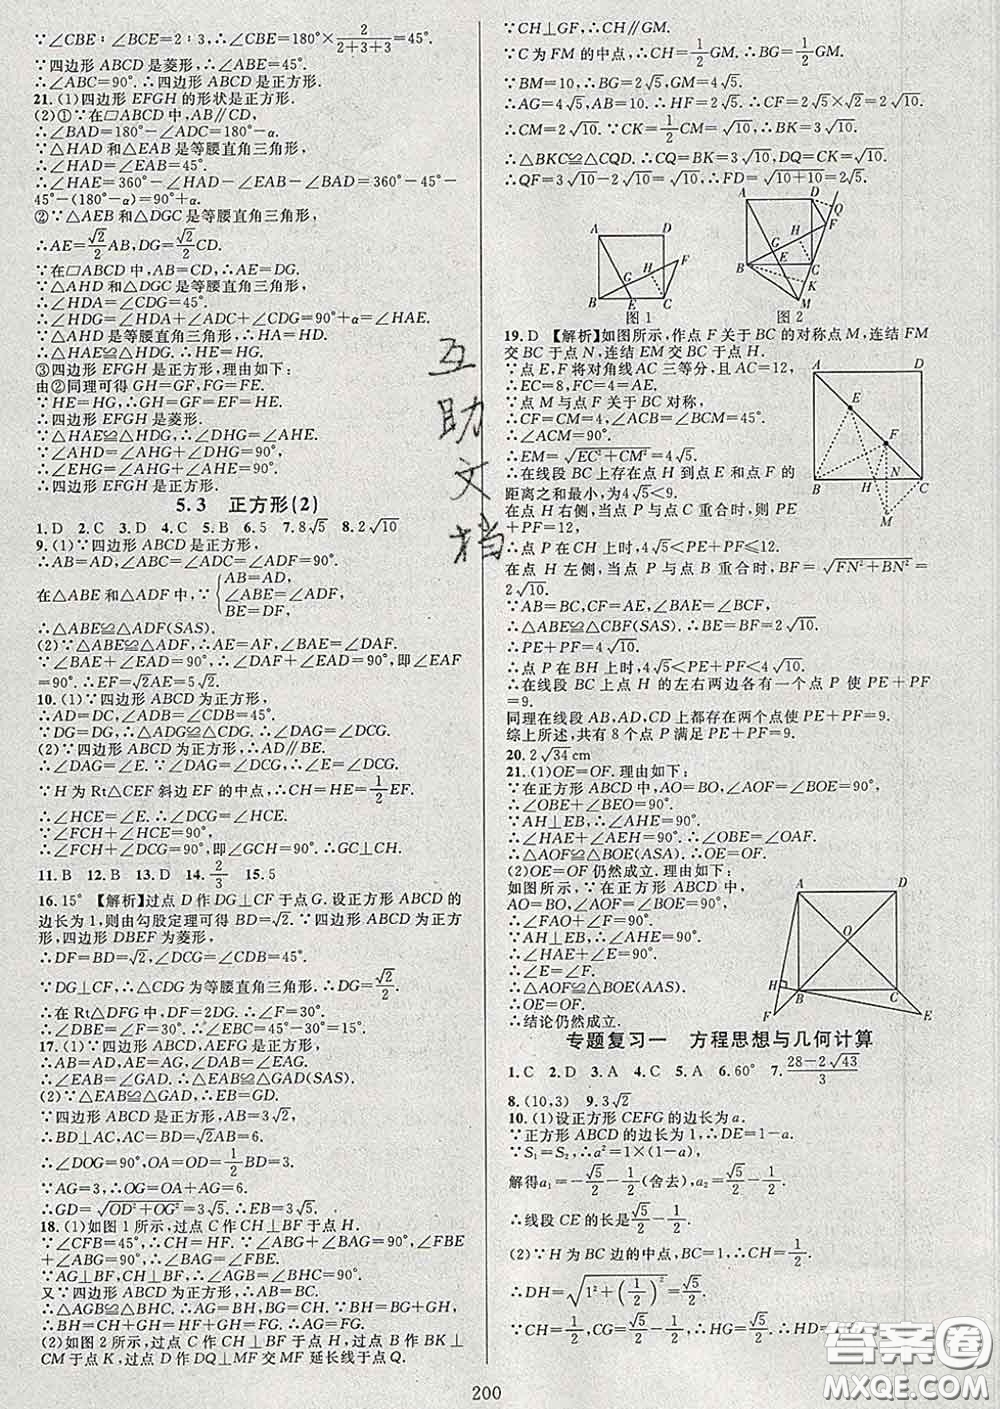 ∵∠CBE∶∠BCE=2∶3,∴∠CBE=180°×2/(2+3+3)=45°.
∵四边形 ABCD 是菱形,∴∠ABE=45°.
∴∠ABC=90°.∴四边形 ABCD 是正方形.
21.(1)四边形 EFGH 的形状是正方形.
(2)①∵在▱ABCD 中,AB∥CD,
∴∠BAD=180°-∠ADC=180°-α.
∵△HAD 和△EAB 是等腰直角三角形,
∴∠HAD=∠EAB=45°.
∴∠HAE=360°-∠HAD-∠EAB-∠BAD=360°-45°-
45°-(180°-α)=90°+α.
②∵△AEB 和△DGC 是等腰直角三角形,
∴AE=√2/2AB,DG=√2/2CD.
∵在▱ABCD 中,AB=CD,∴AE=DG.
∵△AHD 和△DGC 是等腰直角三角形,
∴∠HDA=∠CDG=45°.
∴∠HDG=∠HDA+∠ADC+∠CDG=90°+α=∠HAE.
∵△AHD 是等腰直角三角形,∴HA=HD.
∴△HAE≌△HDG.∴HE=HG.
③四边形 EFGH 是正方形,理由如下:
由②同理可得 GH=GF,FG=FE.
∵HE=HG,∴GH=GF=EF=HE.
∴四边形 EFGH 是菱形.
∵△HAE≌△HDG,∴∠DHG=∠AHE.
∵∠AHD=∠AHG+∠DHG=90°,
∴∠EHG=∠AHG+∠AHE=90°.
∴四边形 EFGH 是正方形.
5.3 正方形(2)
1.D 2.C 3.D 4.C 5.B 6.5 7.8√5 8.2√10
9.(1)∵四边形 ABCD 是正方形,
∴AB=AD,∠ABC=∠ADC=∠ADF=90°.
在△ABE 和△ADF 中,∵{AB=AD,
∠ABE=∠ADF,
BE=DF,
∴△ABE≌△ADF(SAS).
(2)∵△ABE≌△ADF,∴AE=AF,∠BAE=∠DAF.
∵∠BAE+∠EAD=90°,∴∠DAF+∠EAD=90°,即∠EAF
=90°.∴EF=√2AE=5√2.
10.(1)∵四边形 ABCD 为正方形,
∴AD=DC,∠ADB=∠CDB=45°.
又∵DG=DG,∴△ADG≌△CDG.∴∠DAG=∠DCG.
(2)∵四边形 ABCD 为正方形,∴AD∥BE.
∴∠DAG=∠E.∵∠DAG=∠DCG,∴∠DCG=∠E.
∵H 为 Rt△CEF 斜边 EF 的中点,∴CH=HE=1/2EF.
∴∠HCE=∠E.∴∠DCG=∠HCE.
∵∠FCH+∠HCE=90°,
∴∠FCH+∠DCG=90°,即∠GCH=90°.∴GC⊥CH.
11.B 12.B 13.D 14.2/3 15.5
16.15° 【解析】过点 D 作 DG⊥CF 于点 G.设正方形 ABCD 的
边长为 1,则由勾股定理可得 BD=√2.∵四边形 ABCD 为正方
形,四边形 DBEF 为菱形,
∴DF=BD=√2,∠DCG=∠CDB=45°.
∵DG⊥CF,∴△CDG 为等腰直角三角形.∴DG=√2/2.
∴在 Rt△DFG 中,DF=2DG,∴∠F=30°.
∴∠DBE=∠F=30°.∴∠CBE=45°-30°=15°.
17.(1)∵四边形 ABCD,AEFG 是正方形,
∴AB=AD,AE=AG,∠DAB=∠EAG=90°.
∴∠EAB=∠GAD.∴△EAB≌△GAD(SAS).
(2)∵△EAB≌△GAD,∴EB=GD.
∵四边形 ABCD 是正方形,AB=3√2,
∴BD⊥AC,AC=BD=√2AB=6.
∴∠DOG=90°,OA=OD=1/2BD=3.
∵AG=3,∴OG=OA+AG=6.
∴GD=√(OD²+OG²)=3√5.∴EB=3√5.
18.(1)如图 1 所示,过点 C 作 CH⊥BF 于点 H.
∵∠CFB=45°,∴CH=HF.∵∠ABG+∠BAG=90°,
∠FBE+∠ABG=90°,∴∠BAG=∠FBE.
∵AG⊥BF,CH⊥BF,∴∠AGB=∠BHC=90°.
又∵四边形 ABCD 为正方形,∴AB=BC.
∴△AGB≌△BHC.∴AG=BH,BG=CH.∵BH=BG+GH,
∴BH=CH+GH=HF+GH=FG.∴AG=FG.
(2)如图 2 所示,过点 C 作 CH⊥BF 于点 H,过点 B 作 BK⊥
CM 于点 K,过点 D 作 DQ⊥MF 交 MF 延长线于点 Q.
∵CH⊥GF,∴CH∥GM.
∵C 为 FM 的中点,∴CH=1/2GM.∴BG=1/2GM.
∵BM=10,∴BG=2√5,GM=4√5.
∴AG=4√5,AB=10.∴HF=2√5.∴CF=2√5×√2=2√10.
∴CM=2√10.∵CK=1/2CM=√10,∴BK=3√10.
∴△BKC≌△CQD.∴CQ=BK=3√10,DQ=CK=√10.
∴QF=3√10-2√10=√10.∴FD=√(10+10)=2√5.
A D F G H B E C
图 1
A D Q F G H B C K M
图 2
19.D 【解析】如图所示,作点 F 关于 BC 的对称点 M,连结 FM
交 BC 于点 N,连结 EM 交 BC 于点 H.
∵点 E,F 将对角线 AC 三等分,且 AC=12,
∴EC=8,FC=4=AE.
∵点 M 与点 F 关于 BC 对称,
∴CF=CM=4,∠ACB=∠BCM=45°.
∴∠ACM=90°.
∴EM=√(EC²+CM²)=4√5.
∴在线段 BC 上存在点 H 到点 E 和点 F 的
距离之和最小,为 4√5<9.
在点 H 右侧,当点 P 与点 C 重合时,则 PE
+PF=12,
∴点 P 在 CH 上时,4√5<PE+PF≤12.
在点 H 左侧,当点 P 与点 B 重合时,BF=√(FN²+BN²)=
2√10.
∵AB=BC,CF=AE,∠BAE=∠BCF,
∴△ABE≌△CBF(SAS).∴BE=BF=2√10.
∴PE+PF=4√10.
∴点 P 在 BH 上时,4√5<PE+PF<4√10.
∴在线段 BC 上点 H 的左右两边各有一个点 P 使 PE+PF
=9.
同理在线段 AB,AD,CD 上都存在两个点使 PE+PF=9.
综上所述,共有 8 个点 P 满足 PE+PF=9.
A D E F B H N C M
20.2√34 cm
21.(1)OE=OF.理由如下:
∵在正方形 ABCD 中,AO=BO,∠AOF=∠BOE=90°,
∴∠OBE+∠BEO=90°.
∵AH⊥EB,∴∠AHE=90°.
∴∠HAE+∠AEH=90°.∴∠OBE=∠OAF.
∴△AOF≌△BOE(ASA).∴OE=OF.
(2)OE=OF 仍然成立.理由如下:
如图所示,∵在正方形 ABCD 中,
AO=BO,∠AOF=∠BOE=90°,
∴∠FAO+∠F=90°.
∵AH⊥EB,∴∠AHE=90°.
∴∠HAE+∠E=90°.
∴∠E=∠F.
∴△AOF≌△BOE(AAS).
∴OE=OF.
∴结论仍然成立.
A D O H B C F E
专题复习一 方程思想与几何计算
1.C 2.D 3.A 4.C 5.A 6.60° 7.(28-2√43)/3
8.(10,3) 9.3√2
10.(1)设正方形 CEFG 的边长为 a.
∵正方形 ABCD 的边长为 1,∴DE=1-a.
∵S₁=S₂,∴a²=1×(1-a),
解得a₁=-√5/2-1/2(舍去),a₂=√5/2-1/2.
∴线段 CE 的长是√5/2-1/2.
(2)∵H 为 BC 边的中点,BC=1,∴CH=1/2.
∴DH=√(1²+(1/2)²)=√5/2.
∵CH=1/2,CG=√5/2-1/2,∴HG=√5/2.∴HD=
200
互助文档
答案圈
MXQE.COM